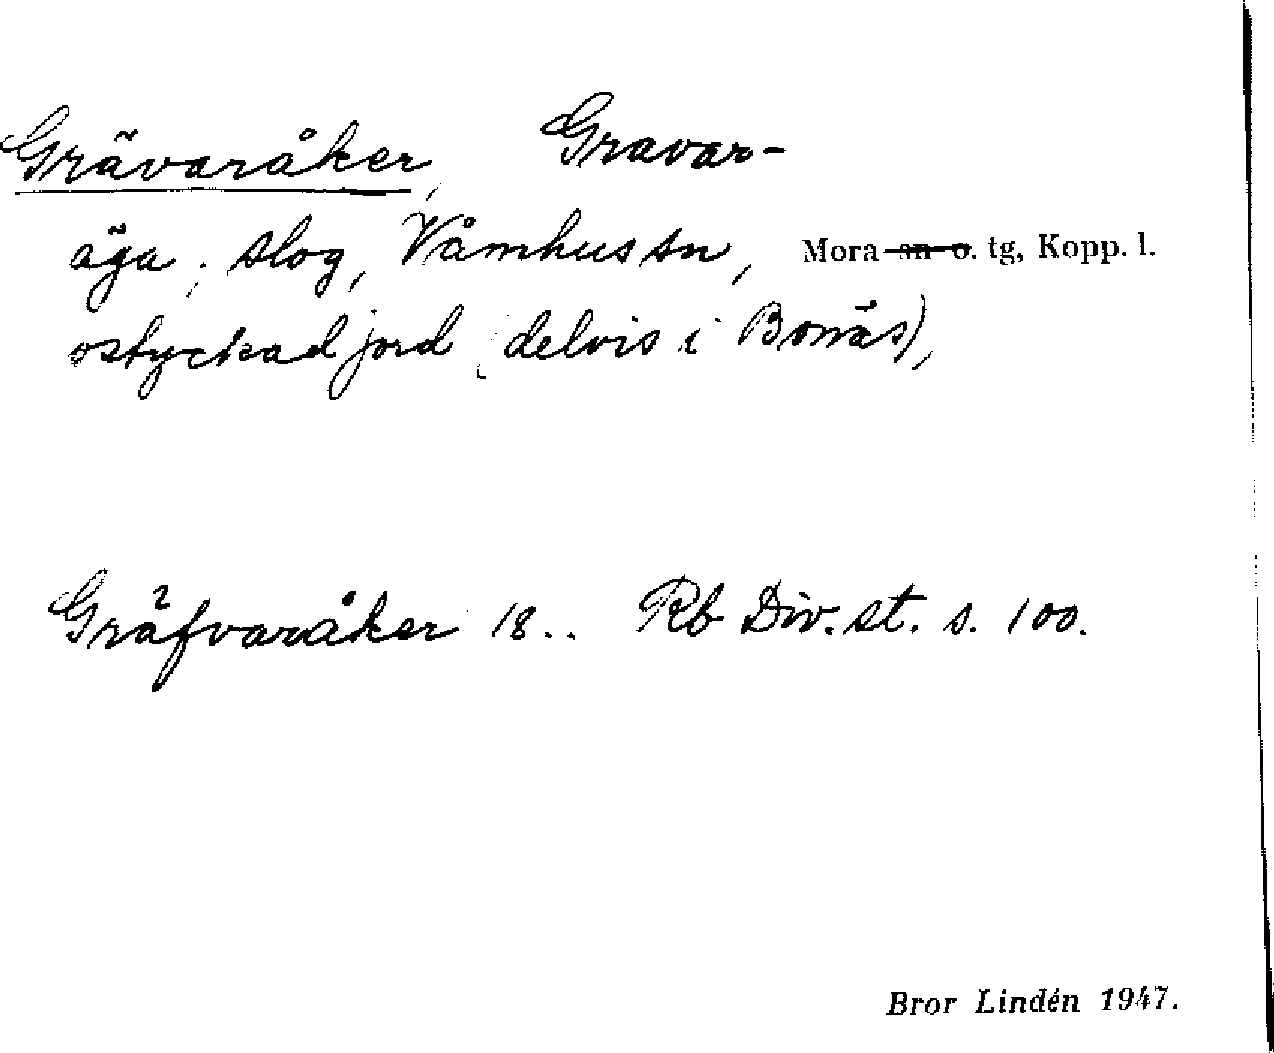 Grävaråker, Gravar-
äga; slog, Våmhus sn, Mora sn o. tg, Kopp. l.
ostyckad jord (delvis i Bonäs),
Gräfvaråker 18.. Rb Div. st. s. 100.
Bror Lindén 1947.